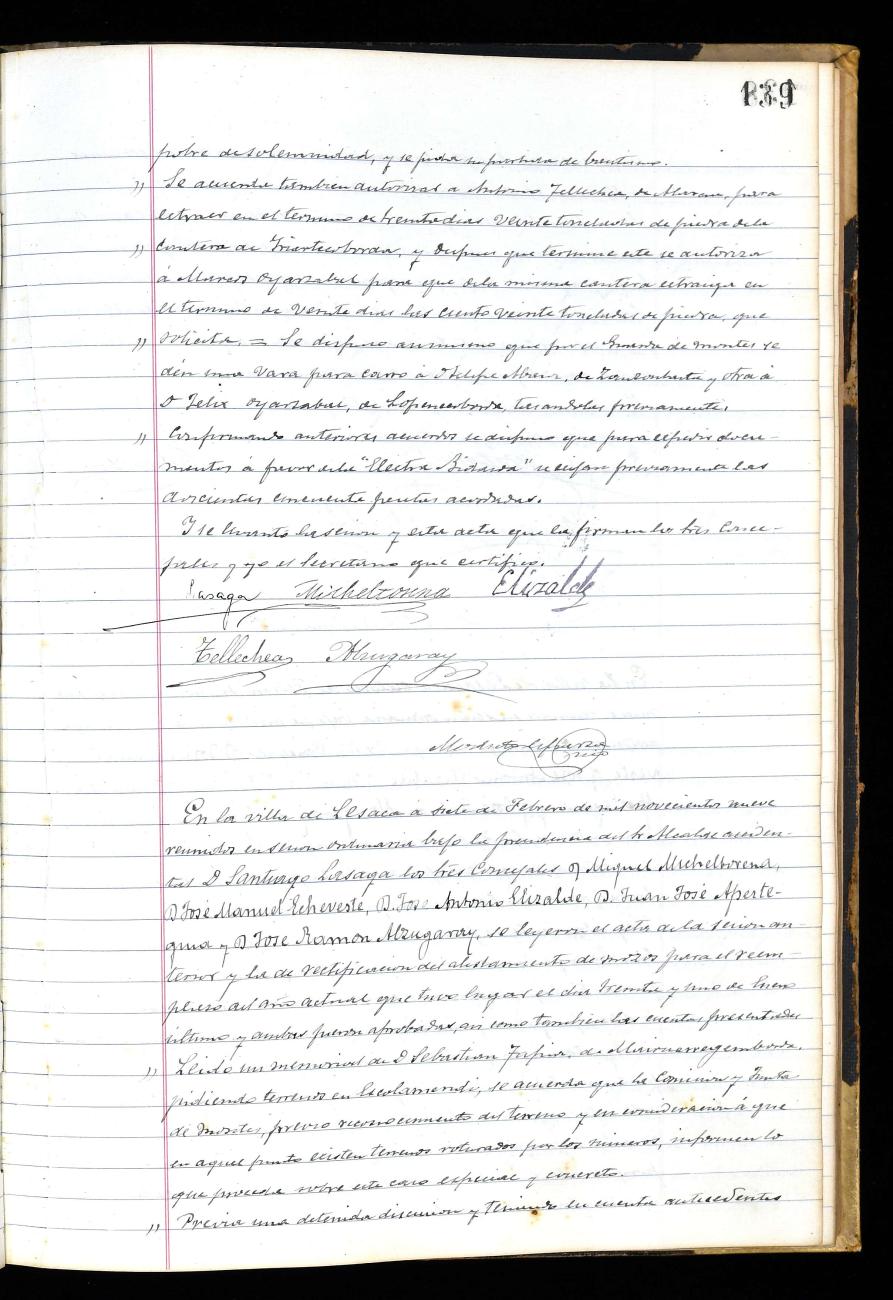 139
pobre de solemnidad, y se pida su partida de bautismo.
" Se acuerda tambien autorizar a Antonio Tellechea, de Marcun, para
estraer en el termino de treinta dias veinte toneladas de piedra de la
" Cantera de Iriarteoborda, y despues que termine este se autoriza
á Marcos Oyarzabal para que de la misma cantera estraiga en
el termino de veinte dias las ciento veinte toneladas de piedra, que
" solicita. = Se dispuso asimismo que por el Guarda de montes se
dén una vara para carro á Felipe , de y otra á
D Felix Oyarzabal, de , tasandolas previamente.
" Confirmando anteriores acuerdos se dispuso que para espedir docu-
mentos á favor de la "Electra Bidasoa" se exijan previamente las
doscientas cincuenta pesetas acordadas.
I se levantó la sesion y esta acta que la firman los tres Conce-
jales y yo el Secretario que certifico.
Lasaga Micheltorena Elizalde
Tellechea Alzugaray
Modesto
En la villa de Lesaca á siete de Febrero de mil novecientos nueve
reunidos en sesion ordinaria bajo la presidencia del Sr Alcalde acciden-
tal D Santiago Lasaga los tres Concejales D Miguel Micheltorena,
D José Manuel Echeveste, D. José Antonio Elizalde, D. Juan José Aperte-
guia y D José Ramon Alzugaray, se leyeron el acta de la sesion an-
terior y la de rectificacion del alistamiento de mozos para el reem-
plazo del año actual que tuvo lugar el dia treinta y uno de Enero
último y ambas fueron aprobadas, asi como tambien las cuentas presentadas
" Leido un memorial de D Sebastian , de
pidiendo terrenos en Escolamendi, se acuerda que la Comision y Junta
de montes, previo reconocimiento del terreno y en consideracion á que
en aquel punto existen terrenos roturados por los mineros, informen lo
que proceda sobre este caso especial y concreto.
" Previa una detenida discusion y teniendo en cuenta antecedentes